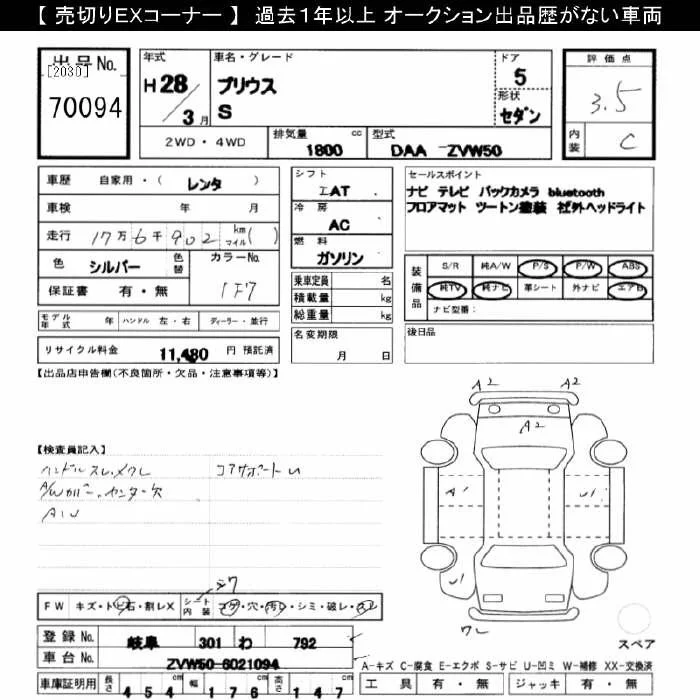 【 売切りEXコーナー 】 過去1年以上 オークション出品歴がない車両
出品No.
[2030]
70094
年式
H28/3月
車名・グレード
プリウス
S
ドア
5
形状
セダン
評価点
3.5
内装
C
2WD・4WD
排気量 1800 cc
型式
DAA-ZVW50
車歴 自家用・( レンタ )
車検 年 月
走行 17万6千902 km マイル( )
色 シルバー 色替
カラーNo.
1F7
保証書 有・無
シフト
IAT
冷房
AC
燃料
ガソリン
乗車定員 名
積載量 kg
総重量 kg
セールスポイント
ナビ テレビ バックカメラ bluetooth
フロアマット ツートン塗装 社外ヘッドライト
装備品
S/R 純A/W P/S P/W ABS
純TV 純ナビ 革シート 外ナビ エアB
ナビ型番:
モデル年式 年 ハンドル 左・右 ディーラー・並行
リサイクル料金 11,480 円 預託済
名変期限
月 日
後日品
【出品店申告欄(不良箇所・欠品・注意事項等)】
A2 A2
A2
【検査員記入】
ハンドルスレ、メクレ コアサポートU
A/Wカバー、センター欠
AIU
A1 U1
U1
ワレ
スペア
シワ
FW キズ・トビ石・割レX シート内装 コゲ・穴・汚レ・シミ・破レ・スレ
登録No. 岐阜 301 わ 792
車台No. ZVW50-6021094
A-キズ C-腐食 E-エクボ S-サビ U-凹ミ W-補修 XX-交換済
車庫証明用 長さ 454 幅 176 高さ 147
工具 有・無 ジャッキ 有・無